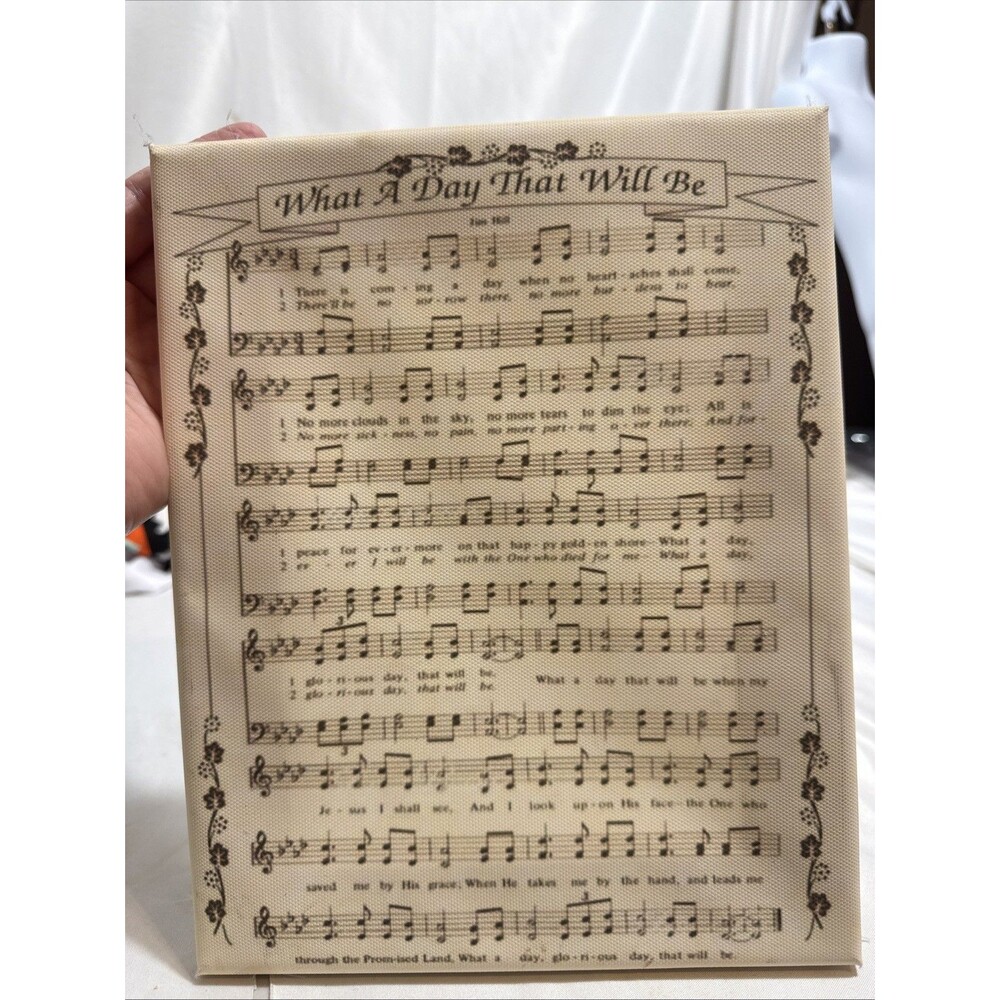 What A Day That Will Be
Jim Hill
1 There is com - ing a day when no heart - aches shall come,
2 There'll be no sor - row there, no more bur - dens to bear,
1 No more clouds in the sky, no more tears to dim the eye; All is
2 No more sick - ness, no pain, no more part - ing o - ver there; And for -
1 peace for ev - er - more on that hap - py gold - en shore- What a day,
2 ev - er I will be with the One who died for me- What a day,
3
1 glo - ri - ous day, that will be.
2 glo - ri - ous day, that will be.
What a day that will be when my
3
Je - sus I shall see, And I look up - on His face-the One who
saved me by His grace; When He takes me by the hand, and leads me
3
through the Prom-ised Land, What a day, glo - ri - ous day, that will be.